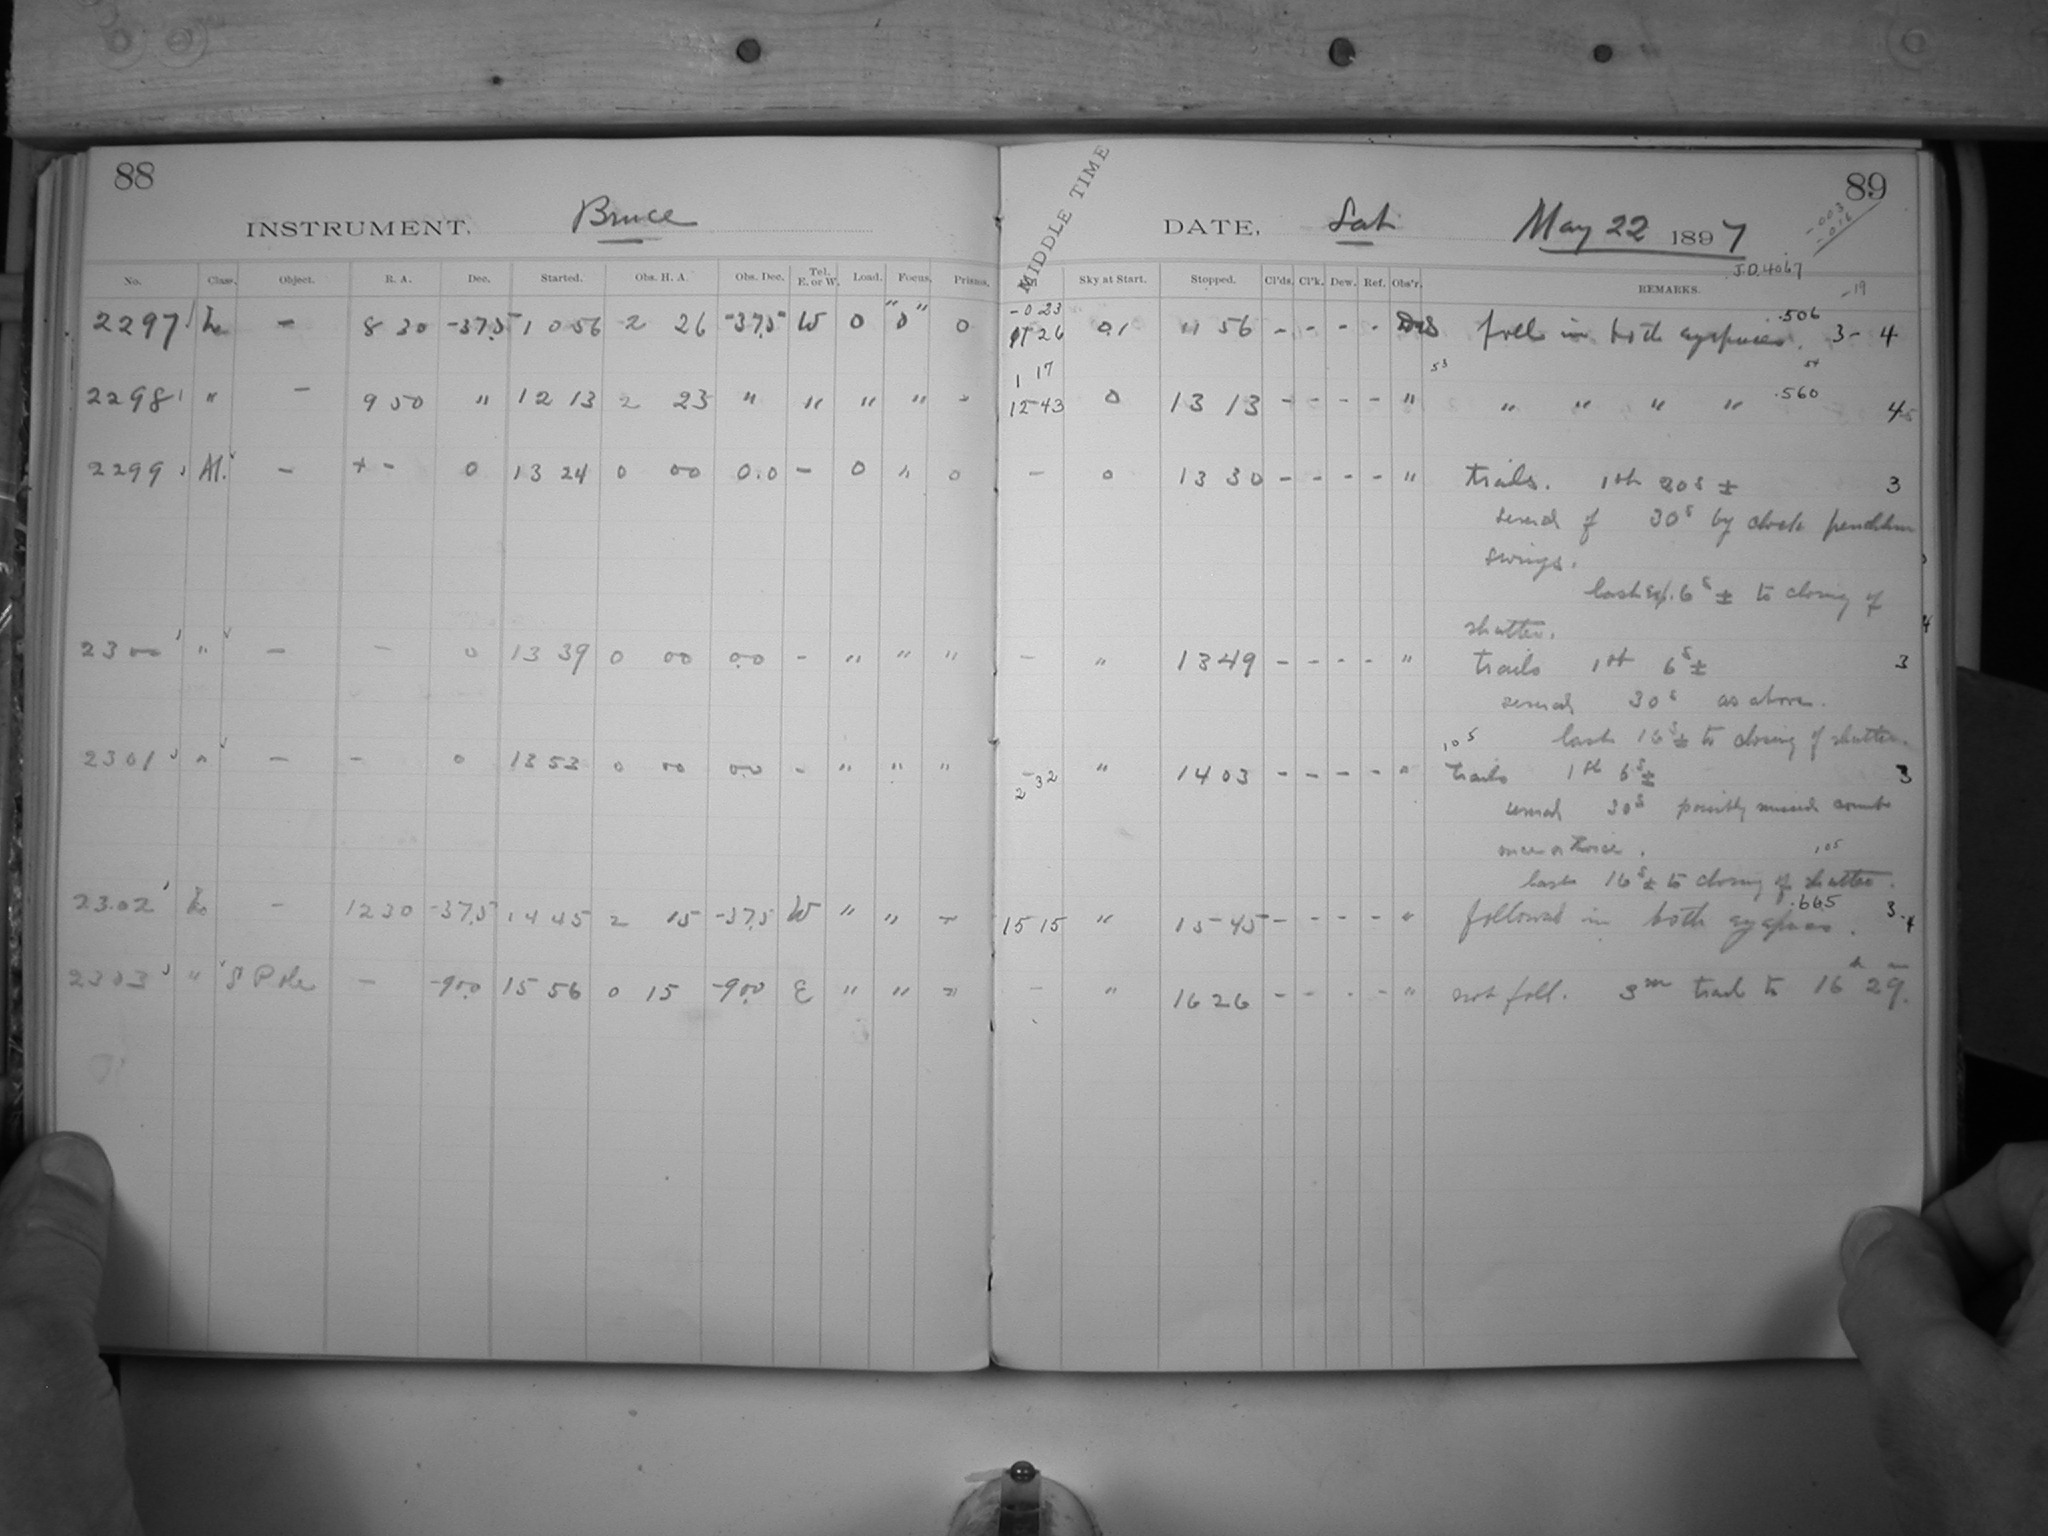 88
INSTRUMENT, Bruce
No. Class. Object. R. A. Dec. Started. Obs. H. A. Obs. Dec. Tel. E. or W. Load. Focus. Prisms.
2297 - 8 30 -37.5 10 56 2 26 -37.5 W 0 0 0
2298 " - 9 50 " 12 13 2 23 " " " "
2299 Al. - - 0 13 24 0 00 0.0 - 0 " 0
2300 " - - 0 13 39 0 00 0.0 - " " "
2301 " - - 0 13 53 0 00 0.0 - " " "
2302 - 12 30 -37.5 14 45 2 15 -37.5 W " " "
2303 " S Pole - -90.0 15 56 0 15 -90.0 E " " "
89
-.003
-.016
MIDDLE TIME
DATE, Sat May 22 1897
J.D. 4067
Sky at Start. Stopped. Cl'ds. Cl'k. Dew. Ref. Obs'r. REMARKS.
-19
-0 23 .506
11 26 0.1 11 56 - - - - foll in both 3-4
1 17 53 54
12 43 0 13 13 - - - - " " " " " .560 4
- 0 13 30 - - - - " trails. 1st 20s ± 3
several of 30s by clock pendulum
swings.
last 6s ± to closing of
shutter.
- " 13 49 - - - - " trails 1st 6s ± 3
several 30s as above.
last 16s ± to closing of shutter.
105
- " 14 03 - - - - " trails 1st 6s ± 3
2 32
several 30s possibly missed count
once or twice.
105
last 16s ± to closing of shutter.
15 15 " 15 45 - - - - " followed in both .665 3-4
- " 16 26 - - - - " not foll. 3m trail to 16h 29m.